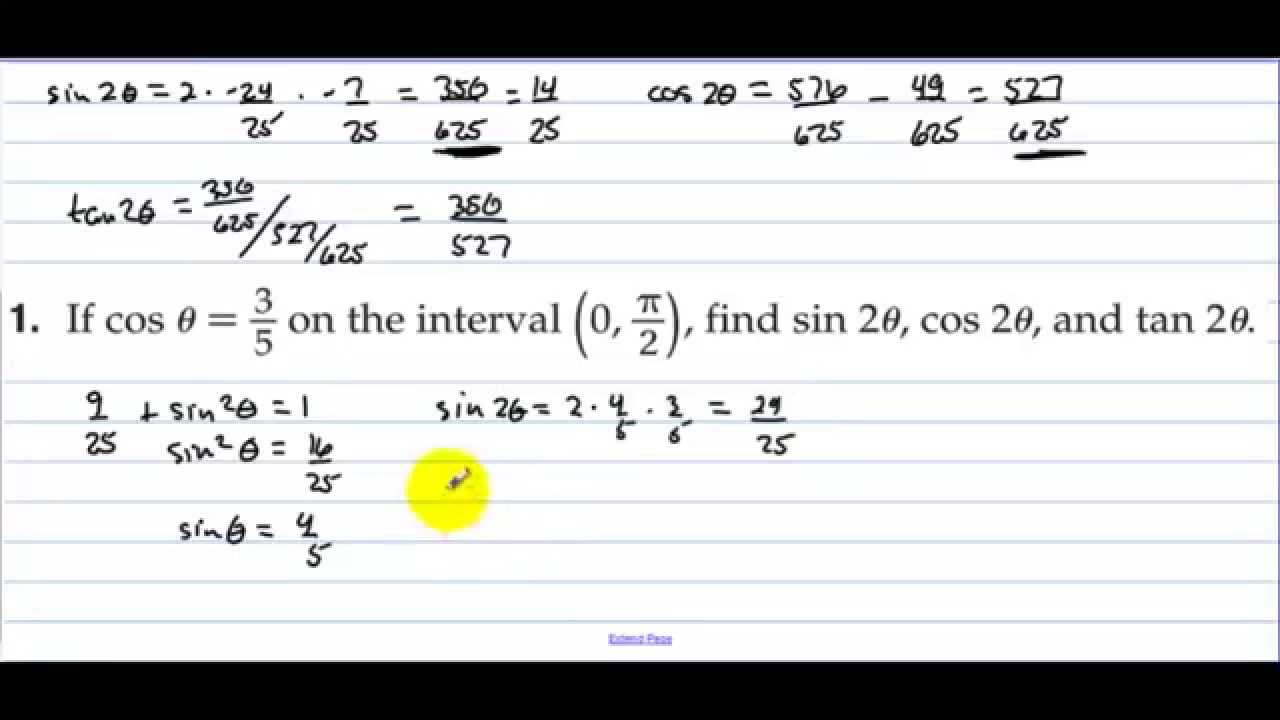 sin 2θ = 2 · -24/25 · -7/25 = 350/625 = 14/25
cos 2θ = 576/625 - 49/625 = 527/625
tan 2θ = 350/625 / 527/625 = 350/527
1. If cos θ = 3/5 on the interval (0, π/2), find sin 2θ, cos 2θ, and tan 2θ.
9/25 + sin²θ = 1
sin²θ = 16/25
sin θ = 4/5
sin 2θ = 2 · 4/5 · 3/5 = 24/25
Extend Page